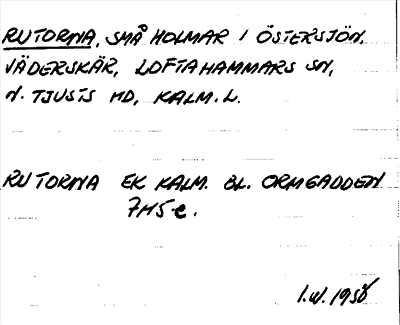 RUTORNA, SMÅ HOLMAR I ÖSTERSJÖN.
VÄDERSKÄR, LOFTAHAMMARS SN,
N. TJUSTS HD, KALM. L.
RUTORNA EK KALM. BL. ORMGADDEN
7H5 e.
I.W. 1958